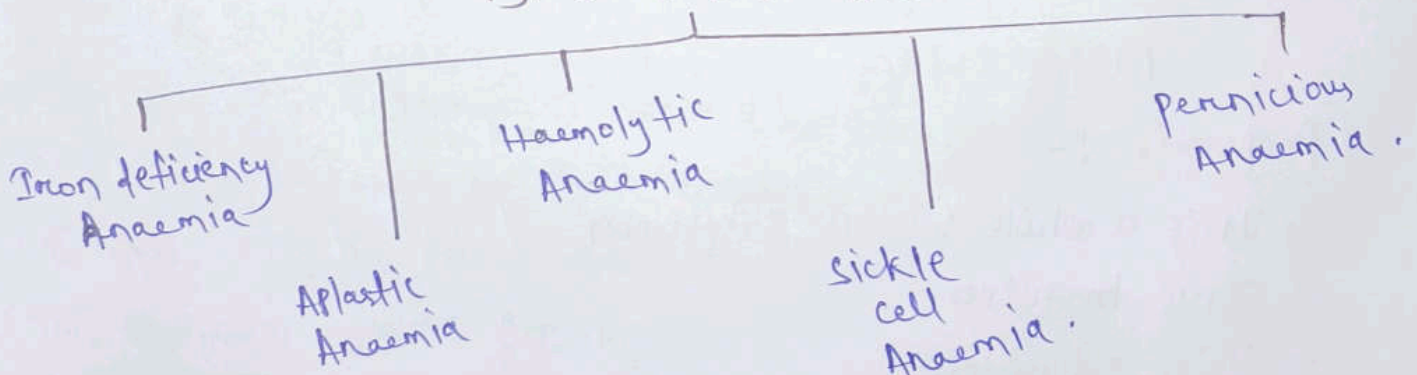 Iron deficiency
Anaemia
Aplastic
Anaemia
Haemolytic
Anaemia
Sickle
cell
Anaemia.
Pernicious
Anaemia.